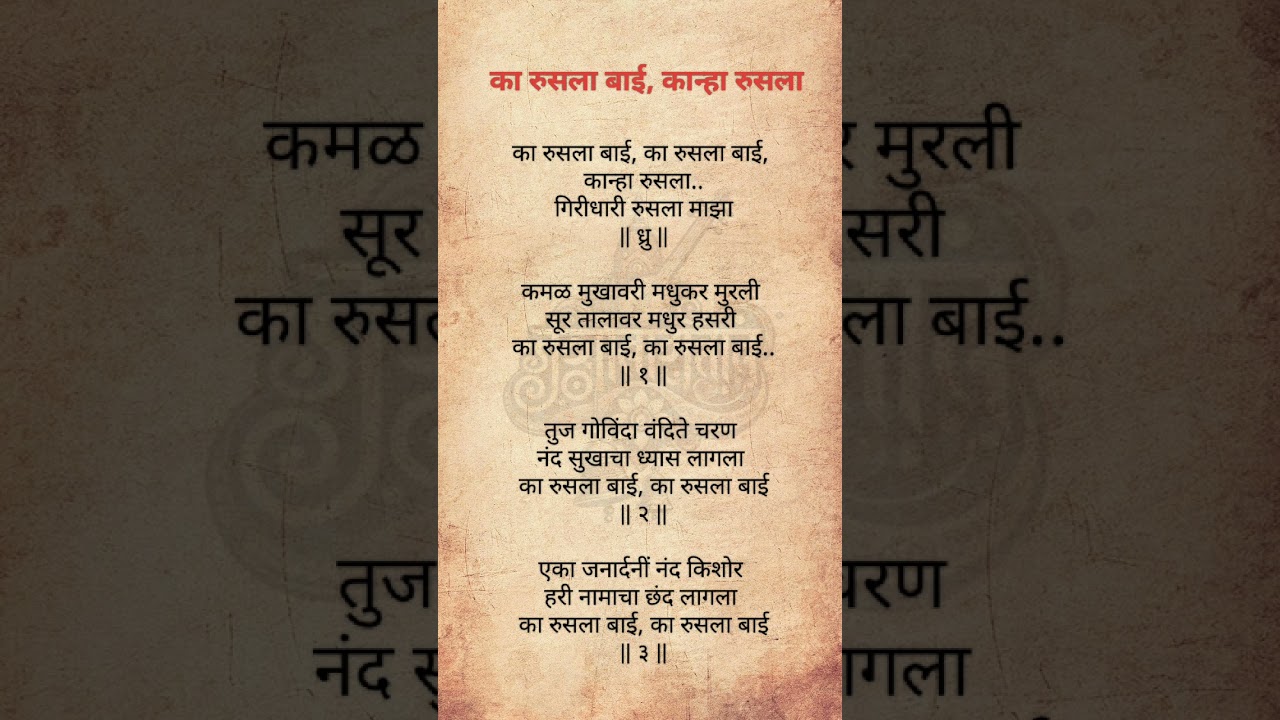 का रुसला बाई, कान्हा रुसला
का रुसला बाई, का रुसला बाई,
कान्हा रुसला..
गिरीधारी रुसला माझा
|| ध्रु ||
कमळ मुखावरी मधुकर मुरली
सूर तालावर मधुर हसरी
का रुसला बाई, का रुसला बाई..
|| १ ||
तुज गोविंदा वंदिते चरण
नंद सुखाचा ध्यास लागला
का रुसला बाई, का रुसला बाई
|| २ ||
एका जनार्दनीं नंद किशोर
हरी नामाचा छंद लागला
का रुसला बाई, का रुसला बाई
|| ३ ||